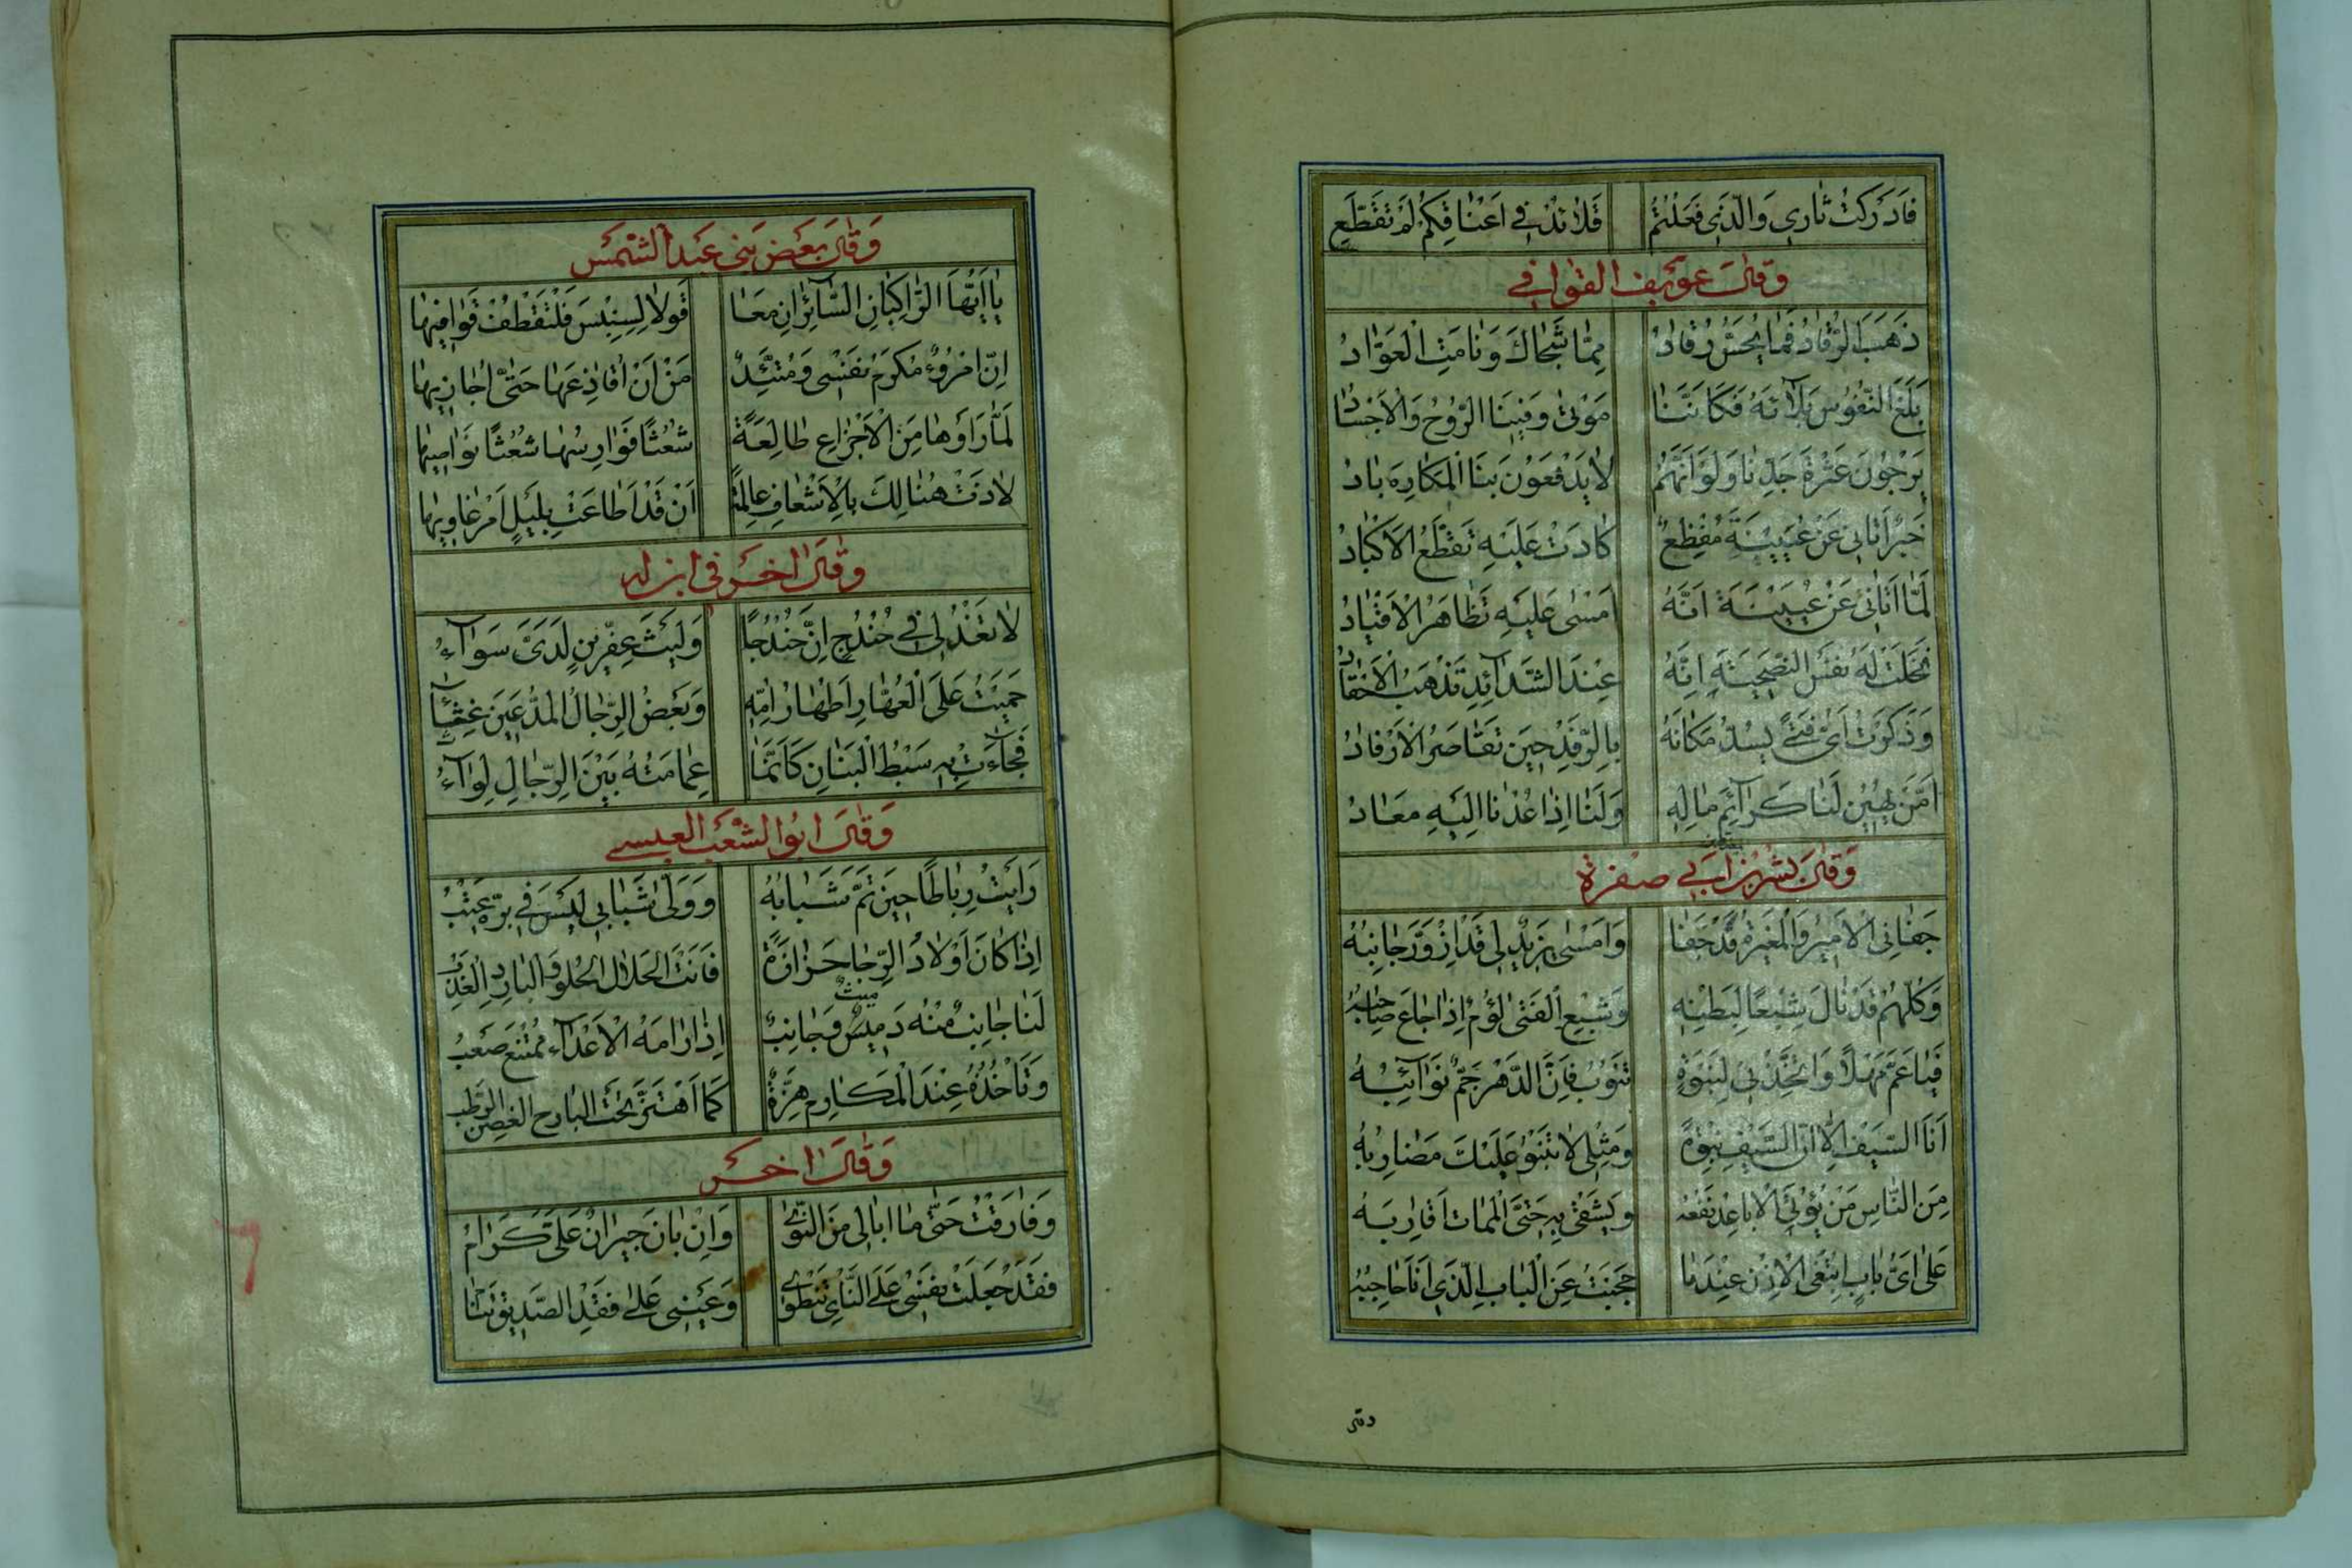 فَاَدْرَكْتُ ثَارِي وَالَّذَيِ فَعَلْتُمُ قَلَائِدُ فِي اَعْنَاقِكُمْ لَمْ تَقَطَّعِ
وقال عويف القوافي
ذَهَبَ الرُّقَادُ فَمَا يُحَسُّ رُقَادُ مِمَّا شَجَاكَ وَنَامَتِ الْعَوَّادُ
بَلَغَ النُّفُوسَ بَلَآئَهُ فَكَاَنَّنَا مَوْتىٰ وَفِينَا الرُّوْحُ وَالْاَجْسَادُ
يَرْجُونَ عَثْرَةَ جَدِّنَا وَلَوْ اَنَّهُمْ لَا يَدْفَعُوْنَ بِنَا الْمَكَارِهَ بَادُ
خَبَرٌ اَتَانِي عَنْ عُيَيْنَةَ مُفْظِعٌ كَادَتْ عَلَيْهِ تَقَطَّعُ الْاَكْبَادُ
لَمَّا اَتَانِي عَنْ عُيَيْنَةَ اَنَّهُ اَمْسٰى عَلَيْهِ تَظَاهَرُ الْاَقْيَادُ
نَخَلَتْ لَهُ نَفْسِي النَّصِيحَةَ اِنَّهُ عِنْدَ الشَّدَآئِدِ تَذْهَبُ الْاَحْقَادُ
وَذَكَرْتُ اَيُّ فَتًى يَسُدُّ مَكَانَهُ بِالرِّفْدِ حِيْنَ تَقَاصَرُ الْاَرْفَادُ
اَمَّنْ يُهِيْنُ لَنَا كَرَآئِمَ مَالِهِ وَلَنَا اِذَا عُدْنَا اِلَيْهِ مَعَادُ
وقال بشر بن ابي صفرة
جَفَانِي الْاَمِيْرُ وَالْمُغِيْرَةُ قَدْ جَفَا وَاَمْسٰى يَزِيْدُ لِي قَدْ اَزْوَرَّ جَانِبُهُ
وَكُلُّهُمْ قَدْ نَالَ شِبْعًا لِبَطْنِهِ وَشِبْعُ الْفَتٰى لُؤْمٌ اِذَا جَاعَ صَاحِبُهُ
فَيَا عَمِّ مَهْلًا وَاتَّخِذْنِي لِنَبْوَةٍ تَنُوْبُ فَاِنَّ الدَّهْرَ جَمٌّ نَوَآئِبُهُ
اَنَا السَّيْفُ اِلَّا اَنَّ السَّيْفِ نَبْوَةً وَمِثْلِي لَا تَنْبُوْ عَلَيْكَ مَضَارِبُهُ
مِنَ النَّاسِ مَنْ يُؤْتَى الْاَبَاعِدُ نَفْعَهُ وَيَشْقٰى بِهِ حَتَّى الْمَمَاتِ اَقَارِبُهُ
عَلٰى اَيِّ بَابٍ اَبْتَغِي الْاِذْنَ عِنْدَمَا حَجَبْتُ عَنِ الْبَابِ الَّذِيْ اَنَا حَاجِبُهُ
وَقَالَ بَعْضُ بَنِي عَبْدِ الشَّمْسِ
يَا اَيُّهَا الرَّاكِبَانِ السَّآئِرَانِ مَعَا قُوْلَا لِسِنْبِسَ فَلْتَقْطُفْ قَوَافِيْهَا
اِنّ امْرُؤٌ مُكْرِمٌ نَفْسِى وَمُتَّئِدٌ مَنْ اَنْ اُقَاذِعَهَا حَتّٰى اُجَازِيْهَا
لَمَّا رَاَوْهَا مِنَ الْاَجْزَاعِ طَالِعَةً شُعْثًا فَوَارِسُهَا شُعْثًا نَوَاصِيْهَا
لَاذَتْ هُنَالِكَ بِالْاَشْعَافِ عَالِمَةً اَنْ قَدْ اَطَاعَتْ بِلَيْلٍ اَمْرَ غَاوِيْهَا
وَقَالَ اخر في ابن له
لَا تَعْذُلِي فِي حُنْدُجٍ اِنَّ حُنْدُجًا وَلَيْثَ عِفِرِّيْنٍ لَدَيَّ سَوَآءُ
حَمَيْتُ عَلَى الْعُهَّارِ اَطْهَارَ اُمِّهِ وَبَعْضُ الرِّجَالِ الْمُدَّعِيْنَ غُثَآءُ
فَجَآءَتْ بِهِ سَبْطَ الْبَنَانِ كَاَنَّمَا عِمَامَتُهُ بَيْنَ الرِّجَالِ لِوَآءُ
وَقَالَ ابُوا الشَّغْب العبسي
رَاَيْتُ رِبَاطًا حِيْنَ تَمَّ شَبَابُهُ وَوَلّٰى شَبَابِي لَيْسَ فِي بِرِّهِ عَتْبُ
اِذَا كَانَ اَوْلَادُ الرِّجَا حَزَازَةً فَاَنْتَ الْحَلَالُ الْحُلْوُ وَالْبَارِدُ الْعَذْبُ
لَنَا جَانِبٌ مِنْهُ دَمِيسٌ وَجَانِبٌ اِذَا رَامَهُ الْاَعْدَآءُ مُمْتَنِعٌ صَعْبُ
وَتَاْخُذُهُ عِنْدَ الْمَكَارِمِ هِزَّةٌ كَمَا اهْتَزَّ تَحْتَ الْبَارِحِ الْغُصُنُ الرَّطْبُ
وَقَالَ اخر
وَفَارَقْتُ حَتّٰى مَا اُبَالِي مِنَ النَّوٰى وَاِنْ بَانَ جِيْرَانٌ عَلَيَّ كَرَامُ
فَقَدْ جَعَلَتْ نَفْسِي عَلَى النَّاْيِ تَنْطَوِي وَعَيْنِي عَلٰى فَقْدِ الصَّدِيْقِ تَنَامُ